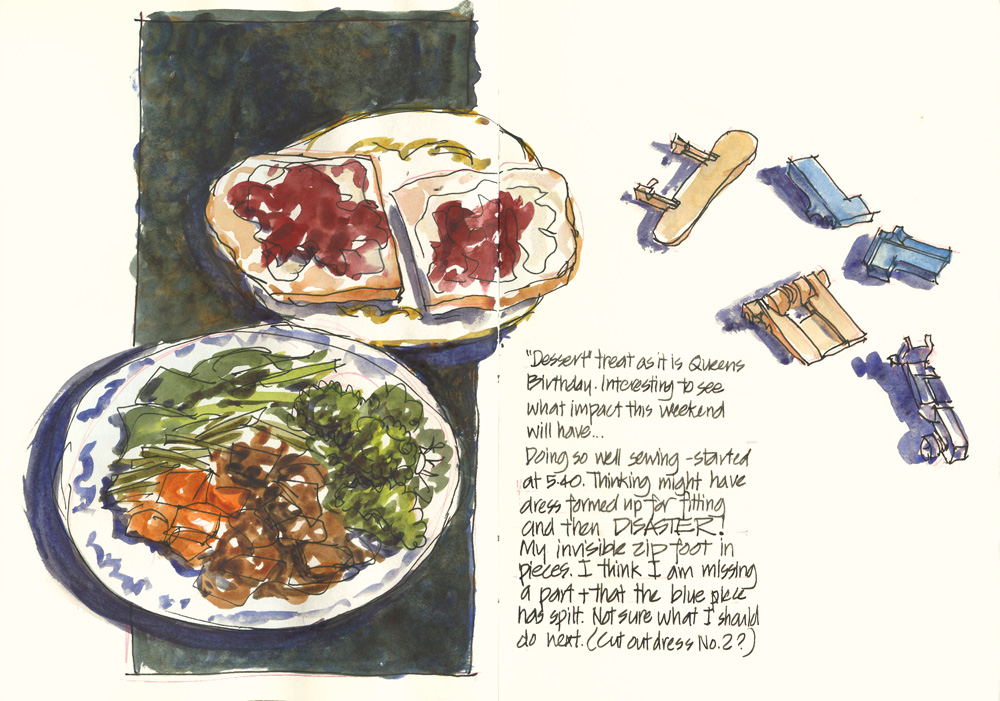 "Dessert" treat as it is Queens
Birthday. Interesting to see
what impact this weekend
will have...
Doing so well sewing - started
at 5.40. Thinking might have
dress formed up for fitting
and then DISASTER!
My invisible zip foot in
pieces. I think I am missing
a part + that the blue piece
has split. Not sure what I should
do next. (Cut out dress No. 2?)